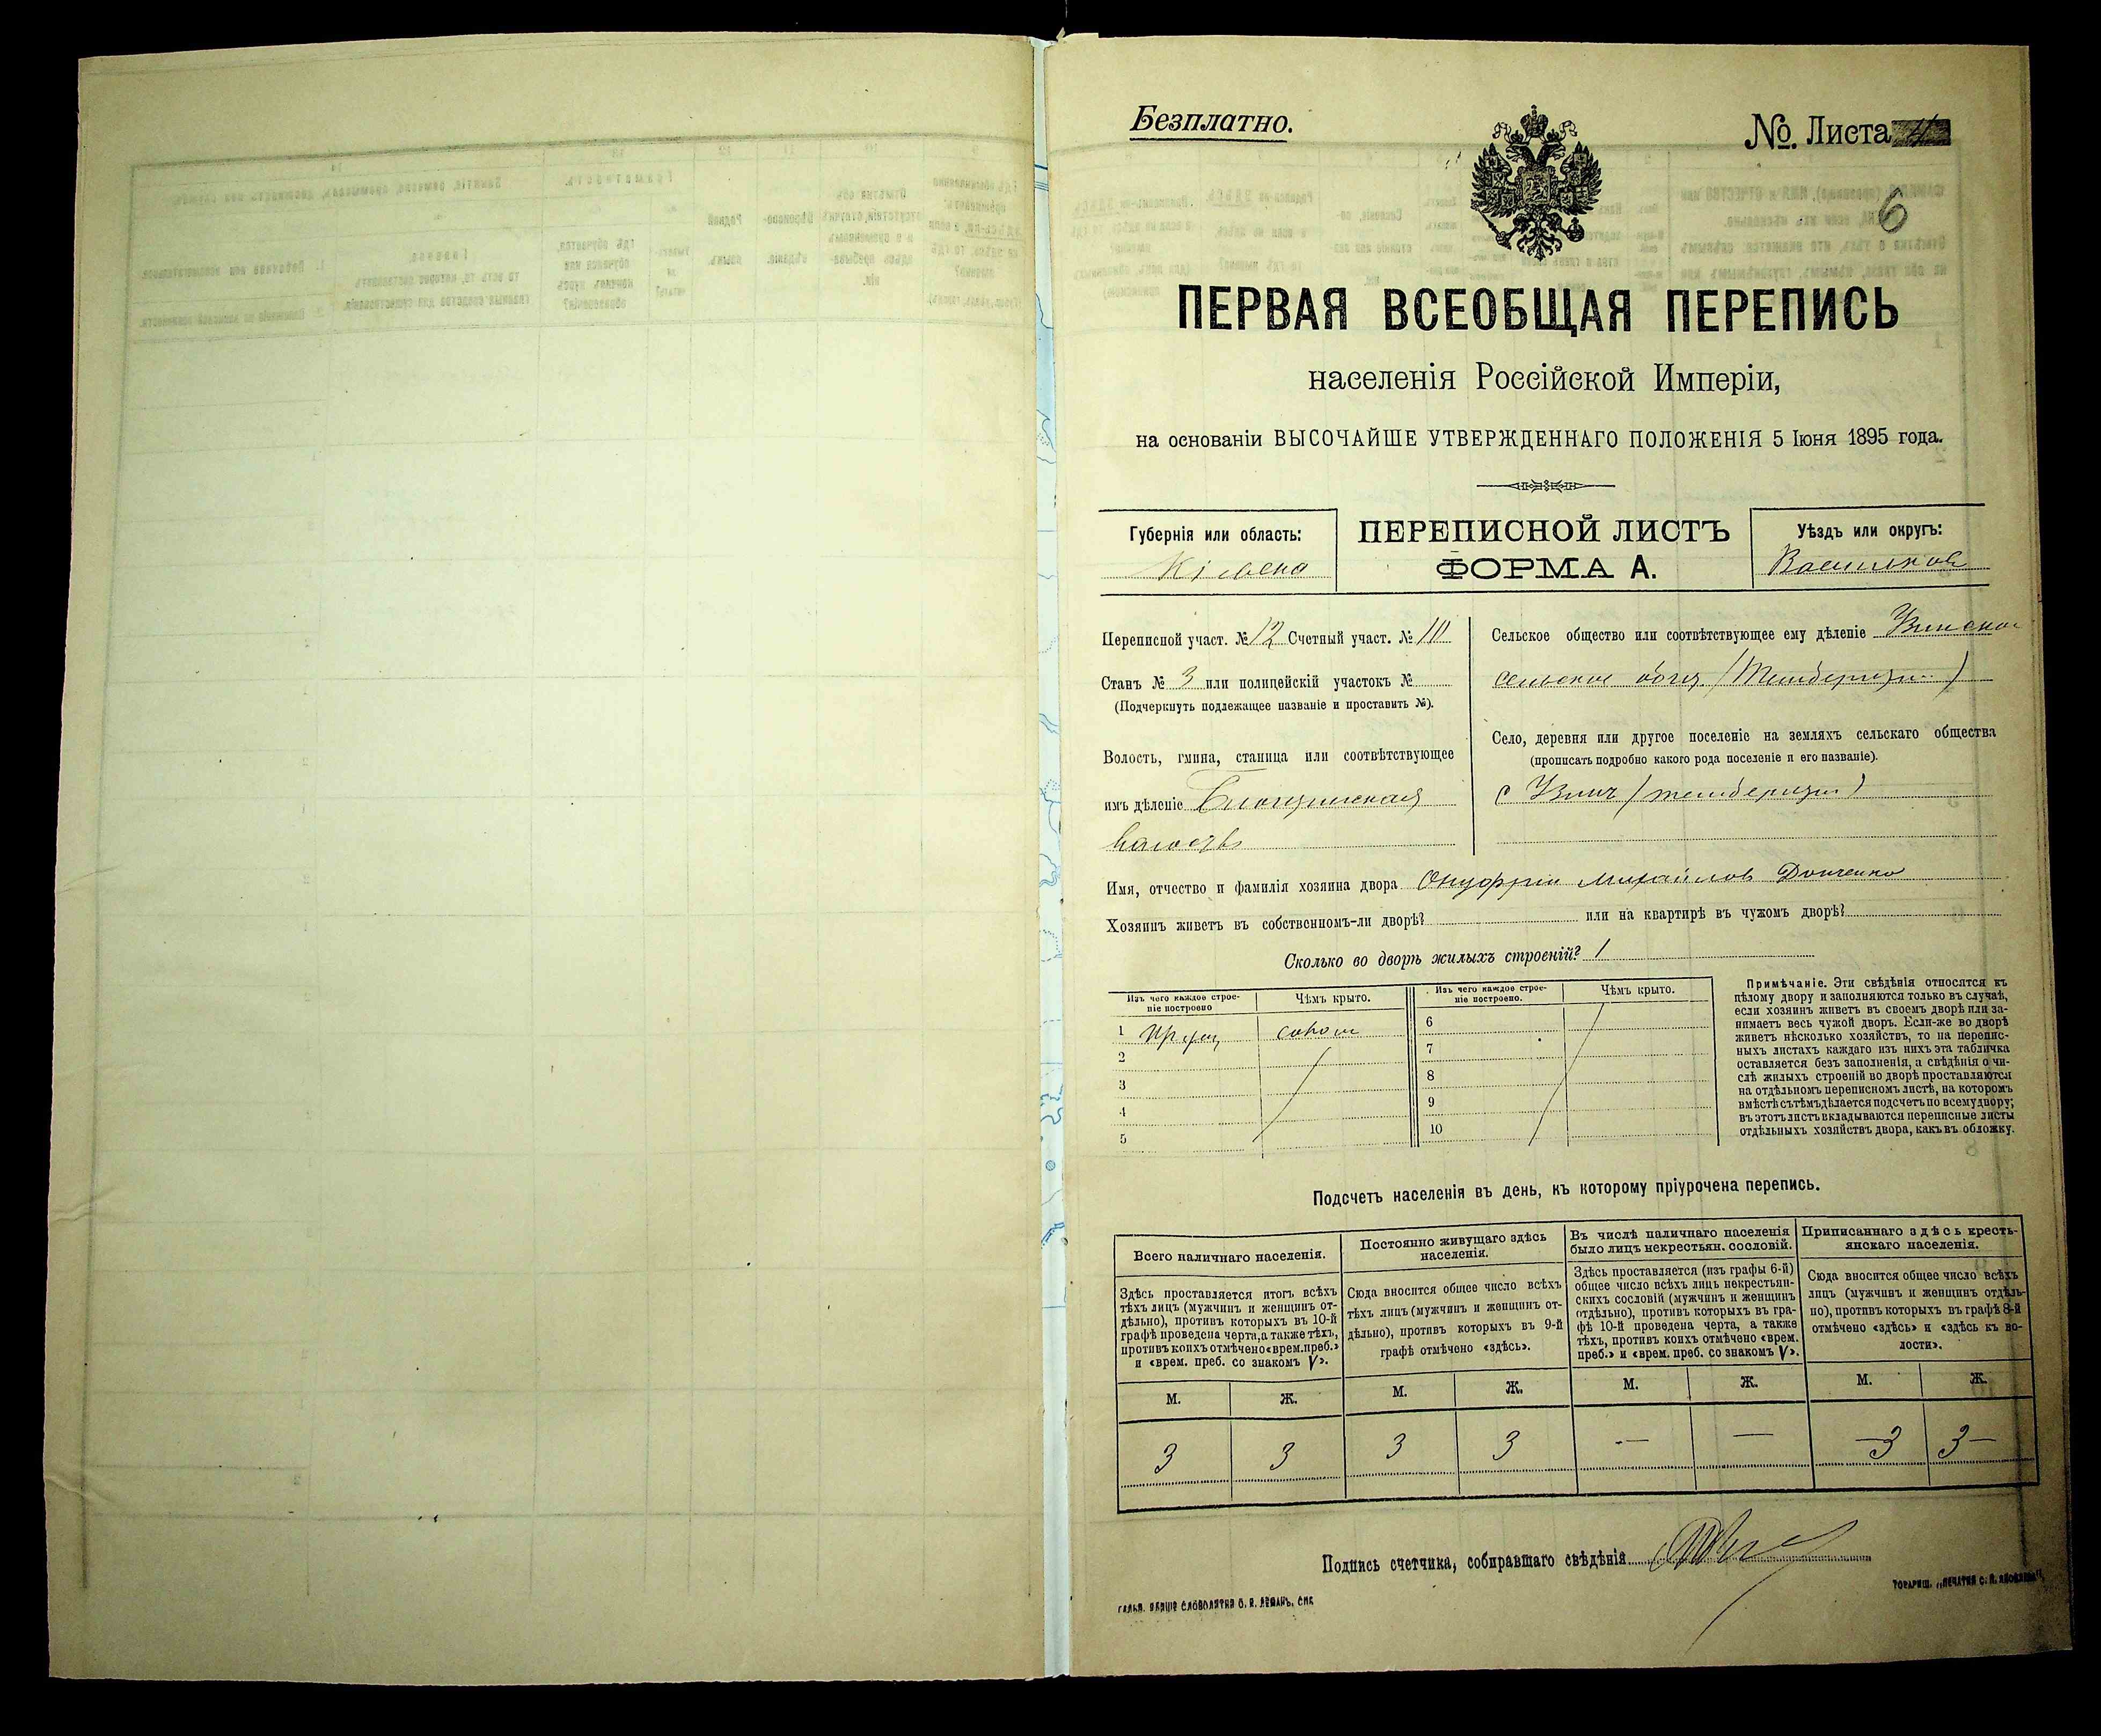 Безплатно.
№. Листа
6
ПЕРВАЯ ВСЕОБЩАЯ ПЕРЕПИСЬ
населенія Россійской Имперіи,
на основаніи ВЫСОЧАЙШЕ УТВЕРЖДЕННАГО ПОЛОЖЕНІЯ 5 Іюня 1895 года.
Губернія или область:
ПЕРЕПИСНОЙ ЛИСТЪ
ФОРМА А.
Уѣздъ или округъ:
Васильков
Переписной участ. № 12 Счетный участ. № 111
Станъ № 3 или полицейскій участокъ №
(Подчеркнуть подлежащее названіе и проставить №).
Волость, гмина, станица или соотвѣтствующее
имъ дѣленіе
волость
Сельское общество или соотвѣтствующее ему дѣленіе
сельское
Село, деревня или другое поселеніе на земляхъ сельскаго общества
(прописать подробно какого рода поселеніе и его названіе).
с
Имя, отчество и фамилія хозяина двора Онуфрій Михайлов Донченко
Хозяинъ живетъ въ собственномъ-ли дворѣ? или на квартирѣ въ чужомъ дворѣ?
Сколько во дворѣ жилыхъ строеній? 1
Изъ чего каждое строе-
ніе построено
Чѣмъ крыто.
Изъ чего каждое строе-
ніе построено.
Чѣмъ крыто.
1
2
3
4
5
6
7
8
9
10
Примѣчаніе. Эти свѣдѣнія относятся къ
цѣлому двору и заполняются только въ случаѣ,
если хозяинъ живетъ въ своемъ дворѣ или за-
нимаетъ весь чужой дворъ. Если-же во дворѣ
живетъ нѣсколько хозяйствъ, то на перепис-
ныхъ листахъ каждаго изъ нихъ эта табличка
оставляется безъ заполненія, а свѣдѣнія о чи-
слѣ жилыхъ строеній во дворѣ проставляются
на отдѣльномъ переписномъ листѣ, на которомъ
вмѣстѣ съ тѣмъ дѣлается подсчетъ по всему двору;
въ этотъ листъ вкладываются переписные листы
отдѣльныхъ хозяйствъ двора, какъ въ обложку.
Подсчетъ населенія въ день, къ которому пріурочена перепись.
Всего наличнаго населенія.
Здѣсь проставляется итогъ всѣхъ
тѣхъ лицъ (мужчинъ и женщинъ от-
дѣльно), противъ которыхъ въ 10-й
графѣ проведена черта, а также тѣхъ,
противъ коихъ отмѣчено «врем. преб.»
и «врем. преб. со знакомъ V».
Постоянно живущаго здѣсь
населенія.
Сюда вносится общее число всѣхъ
тѣхъ лицъ (мужчинъ и женщинъ от-
дѣльно), противъ которыхъ въ 9-й
графѣ отмѣчено «здѣсь».
Въ числѣ наличнаго населенія
было лицъ некрестьян. сословій.
Здѣсь проставляется (изъ графы 6-й)
общее число всѣхъ лицъ некрестьян-
скихъ сословій (мужчинъ и женщинъ
отдѣльно), противъ которыхъ въ гра-
фѣ 10-й проведена черта, а также
тѣхъ, противъ коихъ отмѣчено «врем.
преб.» и «врем. преб. со знакомъ V».
Приписаннаго здѣсь кресть-
янскаго населенія.
Сюда вносится общее число всѣхъ
лицъ (мужчинъ и женщинъ отдѣль-
но), противъ которыхъ въ графѣ 8-й
отмѣчено «здѣсь» и «здѣсь къ во-
лости».
М. Ж. М. Ж. М. Ж. М. Ж.
3 3 3 3 — — 3 3
Подпись счетчика, собиравшаго свѣдѣнія